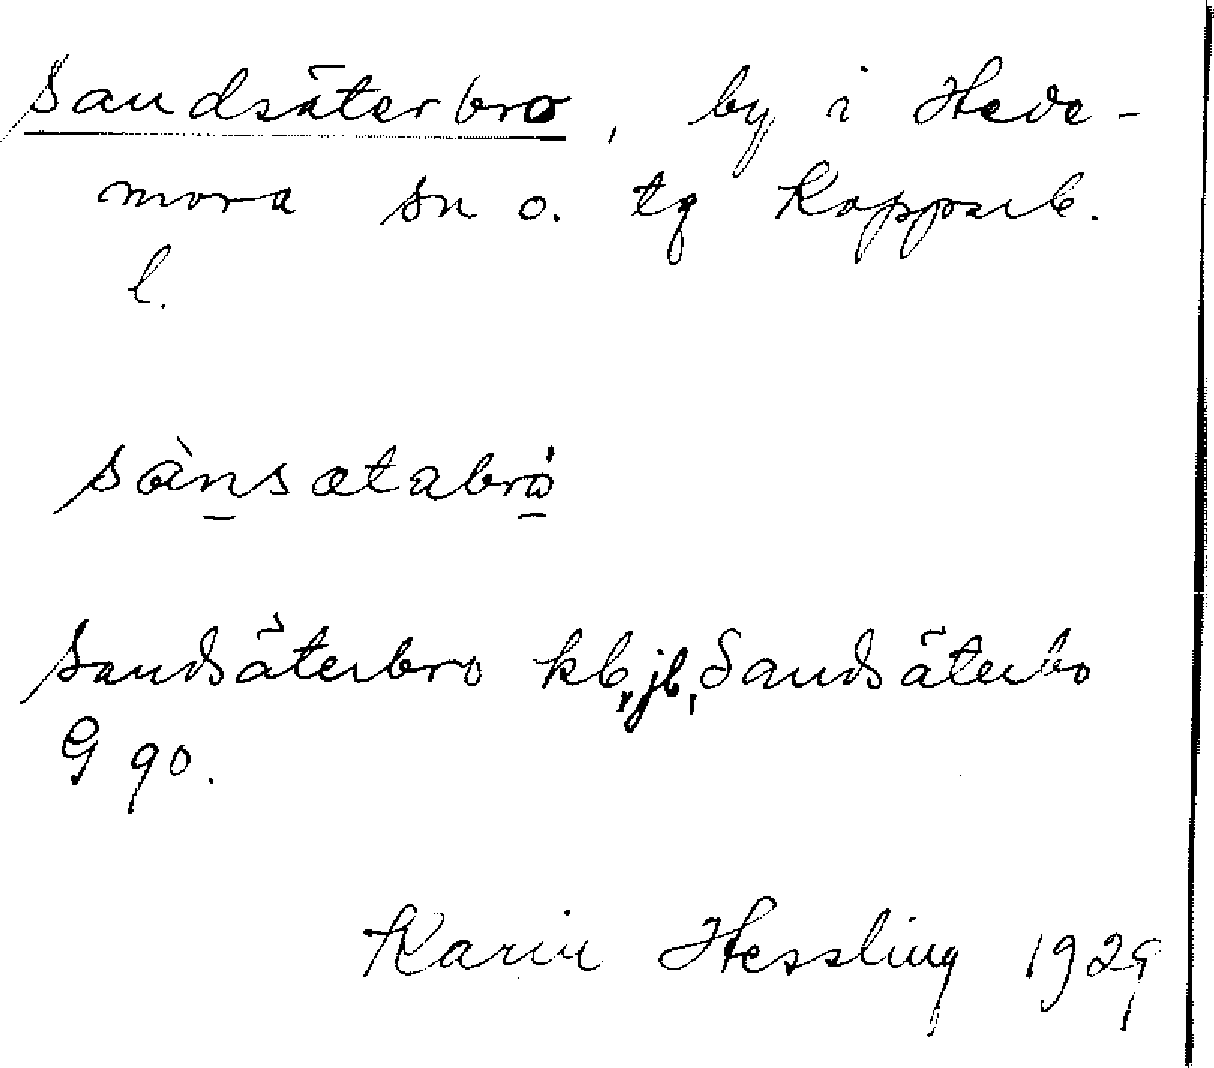 Sandsäterbro, by i Hede-
mora sn o. tg Kopparb.
l.
sànsætabrö̀
Sandsäterbro kb, jb, Sandsäterbo
G 90.
Karin Hessling 1929